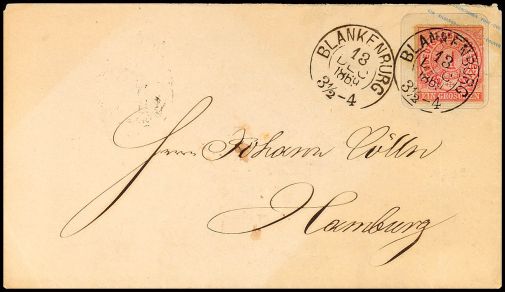 BLANKENBURG
13
DEC
1869
3½-4
BLANKENBURG
13
3½-4
EIN GROSCHEN
Herrn Johann Cölln
Hamburg